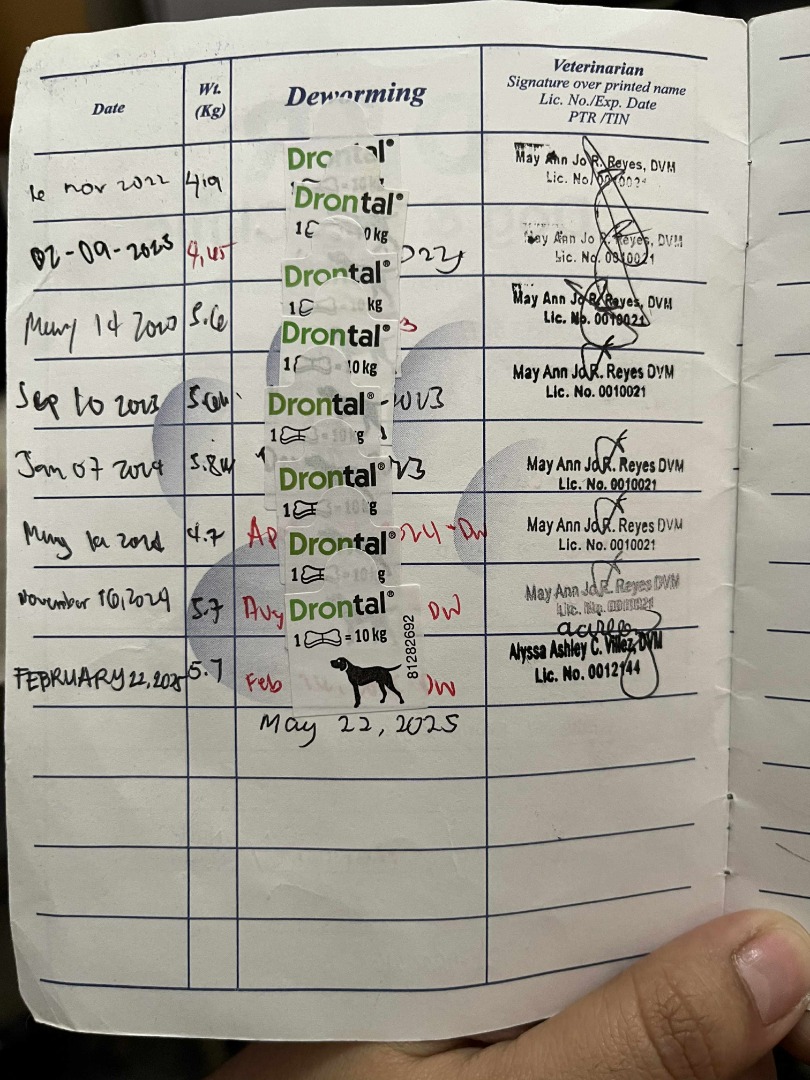 Date
Wt.
(Kg)
Deworming
Veterinarian
Signature over printed name
Lic. No./Exp. Date
PTR /TIN
nov 2022
Drontal®
May Ann Jo R. Reyes, DVM
Lic. No.
02-09-2023
4.45
Drontal®
1 0 kg
May Ann Jo R. Reyes, DVM
Lic. No. 0010021
14
5.6
Drontal®
1 kg
May Ann Jo R. Reyes, DVM
Lic. No. 0010021
Drontal®
1 10 kg
Sep 10 2023
Drontal®
1 g
May Ann Jo R. Reyes DVM
Lic. No. 0010021
Jan 07 2024
Drontal®
1 g
May Ann Jo R. Reyes DVM
Lic. No. 0010021
4.7
Ap
Drontal®
24-DW
1 g
May Ann Jo R. Reyes DVM
Lic. No. 0010021
November 16, 2024
5.7
Aug
Drontal®
DW
1 = 10 kg
81282692
May Ann Jo R. Reyes DVM
Lic. No. 0010021
FEBRUARY 22, 2025
5.7
Feb
DW
Alyssa Ashley C. Villez, DVM
Lic. No. 0012144
May 22, 2025